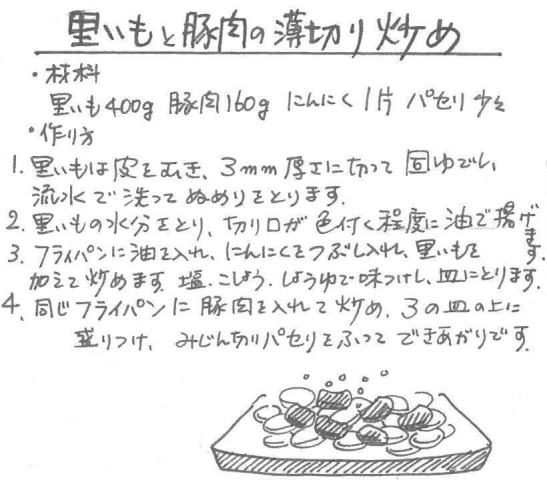 里いもと豚肉の薄切り炒め
・材料
里いも400g 豚肉160g にんにく1片 パセリ少々
・作り方
1. 里いもは皮をむき、3mm厚さに切って固ゆでし、
流水で洗ってぬめりをとります。
2. 里いもの水分をとり、切り口が色付く程度に油で揚げます。
3. フライパンに油を入れ、にんにくをつぶし入れ、里いもを
加えて炒めます。塩、こしょう、しょうゆで味つけし、皿にとります。
4. 同じフライパンに豚肉を入れて炒め、3の皿の上に
盛りつけ、みじん切りパセリをふってできあがりです。